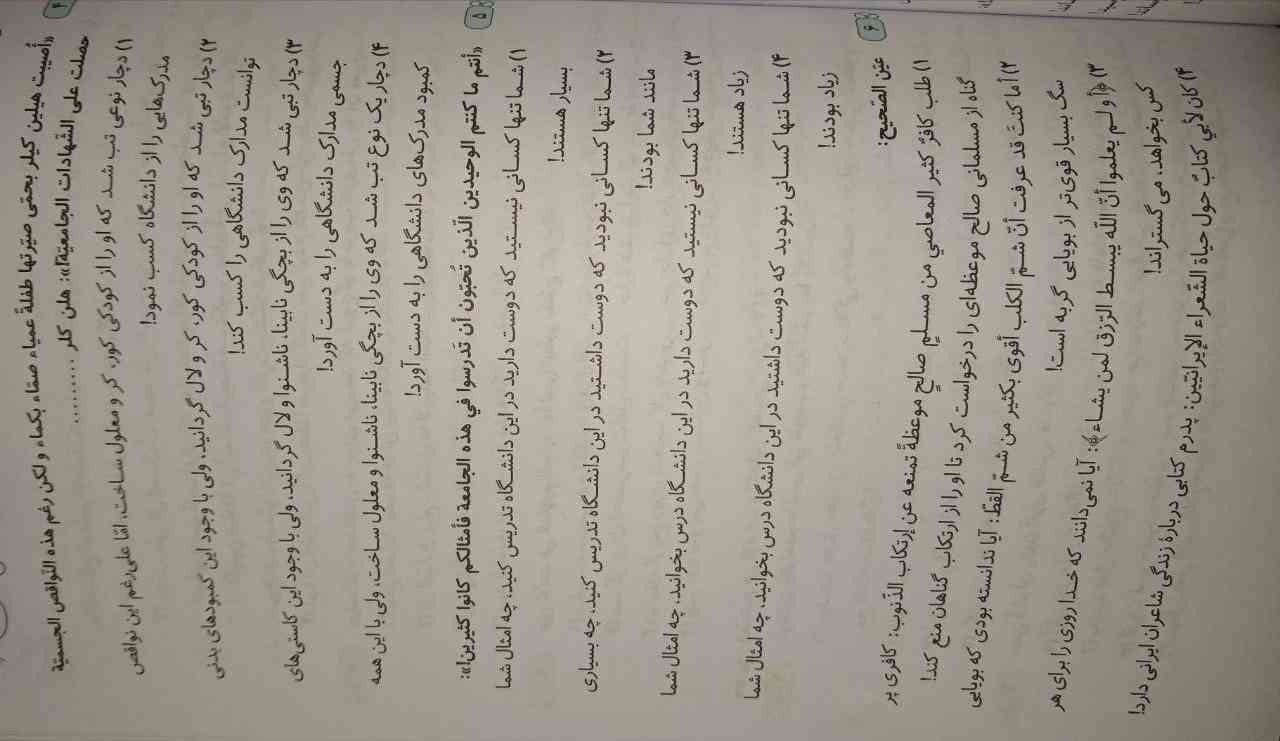 ۴
«أُصیبت هیلین کیلر بحمّی صیّرتها طفلةً عمیاء صمّاء بکماء ولکن رغم هذه النّواقص الجسمیّة
حصلت علی الشّهادات الجامعیّة!»: هلن کلر ..........
۱) دچار نوعی تب شد که او را از کودکی کور، کر و معلول ساخت، امّا علی‌رغم این نواقص
مدرک‌هایی را از دانشگاه کسب نمود!
۲) دچار تبی شد که او را از کودکی کور، کر و لال گردانید، ولی با وجود این کمبودهای بدنی
توانست مدارک دانشگاهی را کسب کند!
۳) دچار تبی شد که وی را از بچگی نابینا، ناشنوا و لال گردانید، ولی با وجود این کاستی‌های
جسمی مدارک دانشگاهی را به دست آورد!
۴) دچار یک نوع تب شد که وی را از بچگی نابینا، ناشنوا و معلول ساخت، ولی با این همه
کمبود مدرک‌های دانشگاهی را به دست آورد!
۵
«أنتم ما کنتم الوحیدین الّذین تُحبّون أن تَدرسوا في هذه الجامعة فأمثالکم کانوا کثیرین!»:
۱) شما تنها کسانی نیستید که دوست دارید در این دانشگاه تدریس کنید، چه امثال شما
بسیار هستند!
۲) شما تنها کسانی نبودید که دوست داشتید در این دانشگاه تدریس کنید، چه بسیاری
مانند شما بودند!
۳) شما تنها کسانی نیستید که دوست دارید در این دانشگاه درس بخوانید، چه امثال شما
زیاد هستند!
۴) شما تنها کسانی نبودید که دوست داشتید در این دانشگاه درس بخوانید، چه امثال شما
زیاد بودند!
۶
عیّن الصّحیح:
۱) طلب کافرٌ کثیر المعاصي من مسلمٍ صالحٍ موعظةً تمنعه عن إرتکاب الذّنوب: کافری پر
گناه از مسلمانی صالح موعظه‌ای را درخواست کرد تا او را از ارتکاب گناهان منع کند!
۲) أما کنتَ قد عرفت أنّ شمّ الکلب أقوی بکثیر من شمّ القطّ: آیا ندانسته بودی که بویایی
سگ بسیار قوی‌تر از بویایی گربه است!
۳) ﴿أو لم یعلموا أنّ اللّه یبسط الرّزق لمن یشاء﴾: آیا نمی‌دانند که خدا روزی را برای هر
کس بخواهد، می‌گستراند!
۴) کان لأبي کتابٌ حول حیاة الشّعراء الإیرانیّین: پدرم کتابی دربارهٔ زندگی شاعران ایرانی دارد!